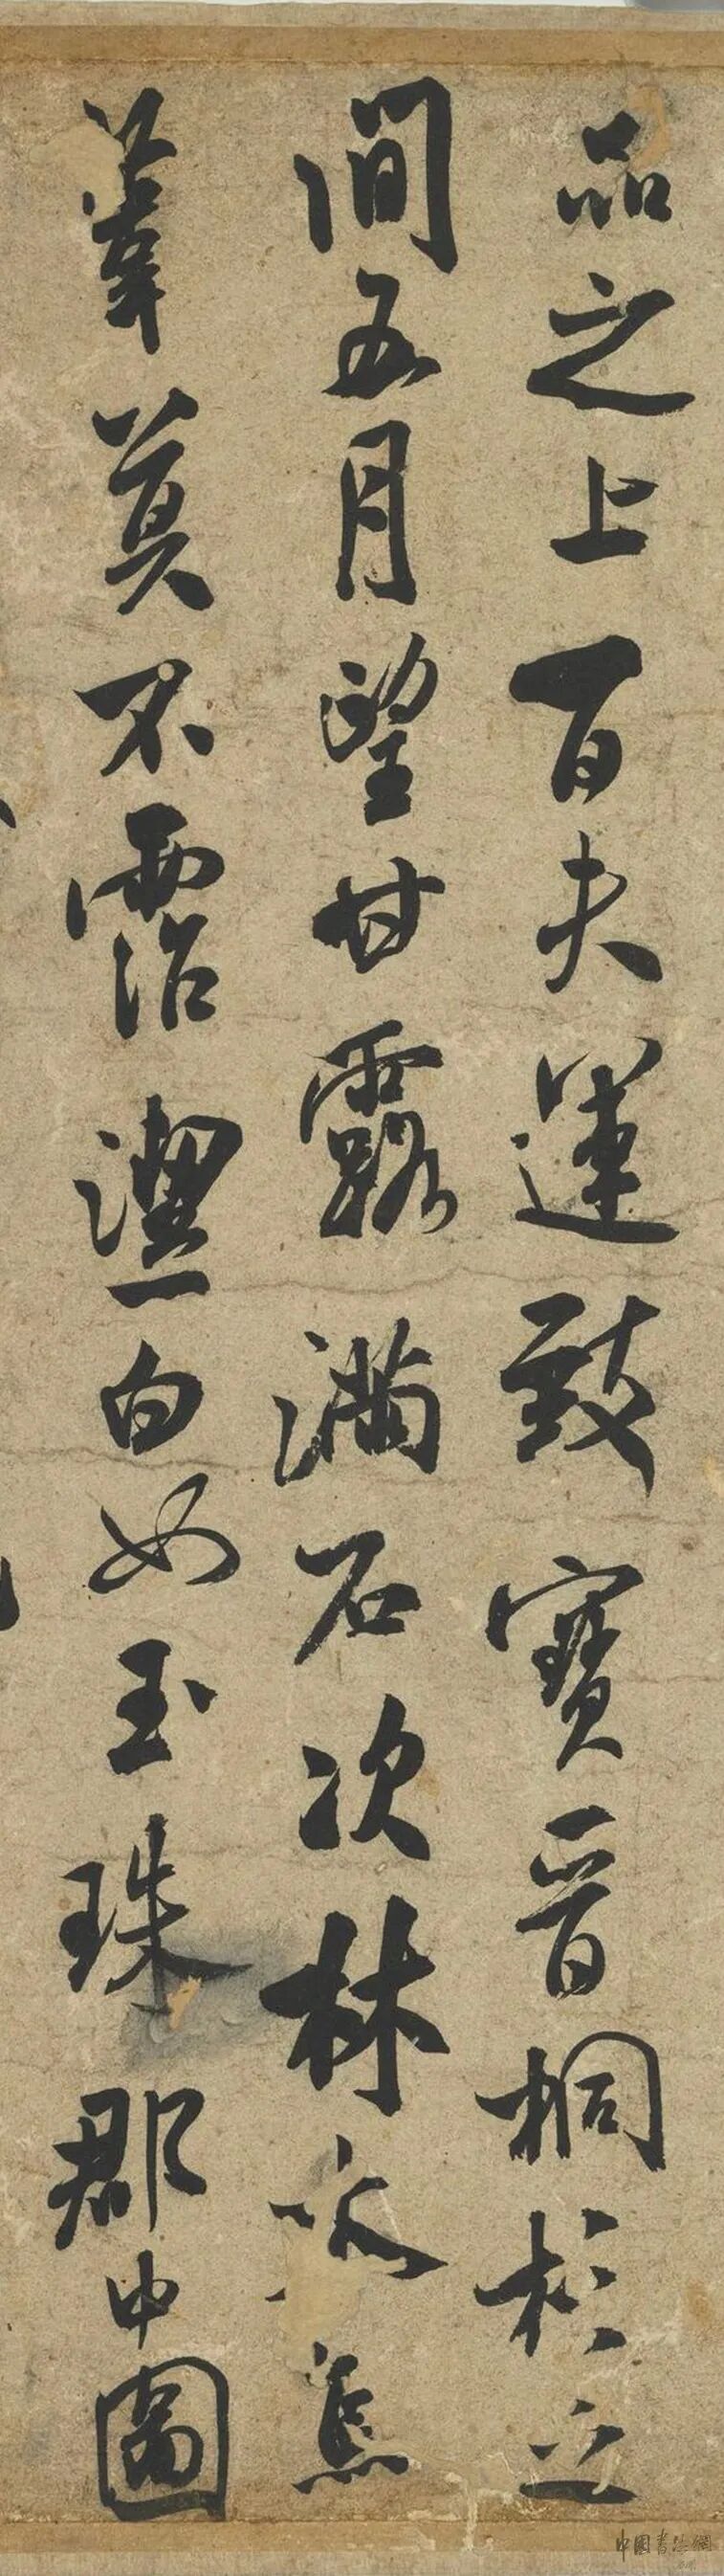 品之上百夫運致寶晉桐杉之
間五月望甘露滿石次林焦
葦莫不霑潔白如玉珠郡中圖
中國書法網